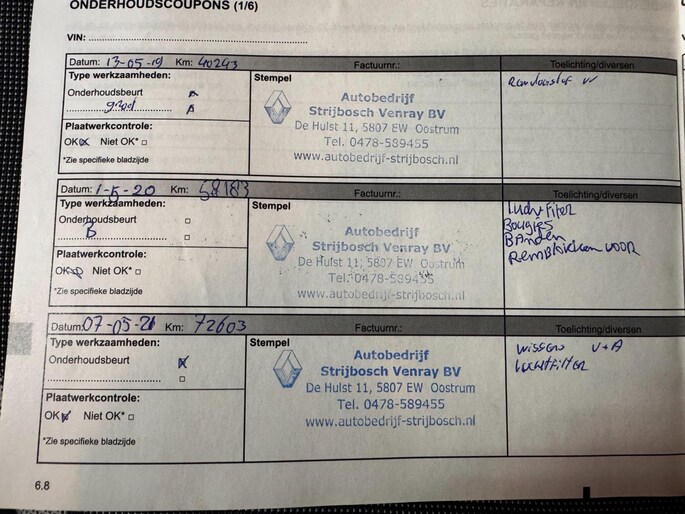 ONDERHOUDSCOUPONS (1/6)
VIN:
Datum: 13-05-19 Km: 40293 Factuurnr.: Toelichting/diversen
Type werkzaamheden:
Onderhoudsbeurt
groot
Plaatwerkcontrole:
OK Niet OK*
*Zie specifieke bladzijde
Stempel
Autobedrijf
Strijbosch Venray BV
De Hulst 11, 5807 EW Oostrum
Tel. 0478-589455
www.autobedrijf-strijbosch.nl
Datum: 1-5-20 Km: 58183 Factuurnr.: Toelichting/diversen
Type werkzaamheden:
Onderhoudsbeurt
B
Plaatwerkcontrole:
OK Niet OK*
*Zie specifieke bladzijde
Stempel
Autobedrijf
Strijbosch Venray BV
De Hulst 11, 5807 EW Oostrum
Tel. 0478-589455
www.autobedrijf-strijbosch.nl
Bougies
Banden
Remblokken voor
Datum: 07-05-21 Km: 72603 Factuurnr.: Toelichting/diversen
Type werkzaamheden:
Onderhoudsbeurt
Plaatwerkcontrole:
OK Niet OK*
*Zie specifieke bladzijde
Stempel
Autobedrijf
Strijbosch Venray BV
De Hulst 11, 5807 EW Oostrum
Tel. 0478-589455
www.autobedrijf-strijbosch.nl
wissers V+A
luchtfilter
6.8